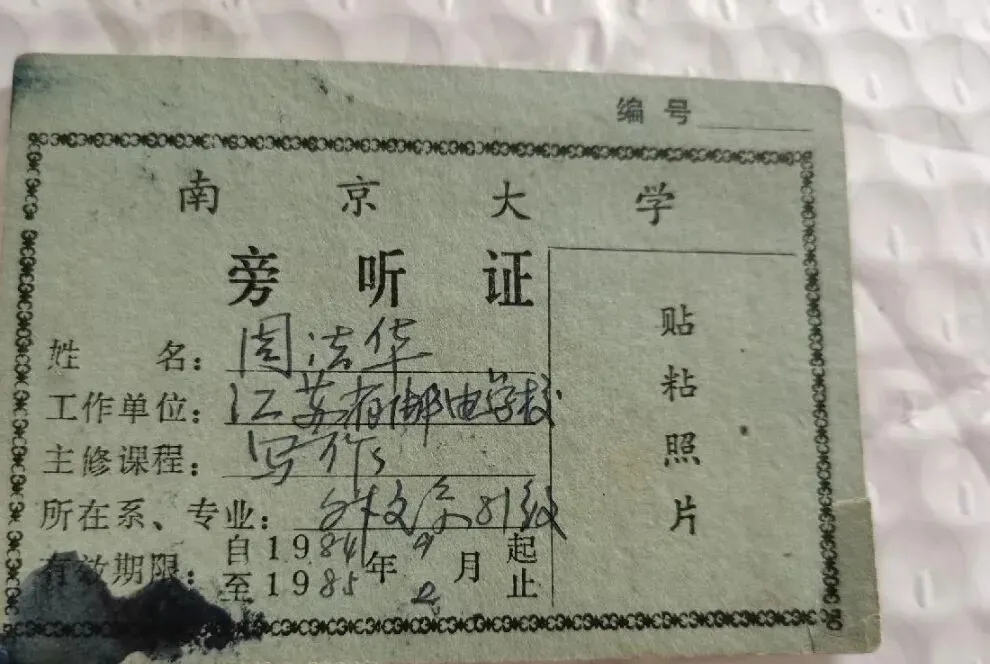 编号
南京大学
旁听证
姓名：周法华
工作单位：江苏省邮电学校
主修课程：写作
所在系、专业：外文系81级
有效期限：自1984年9月起
至1985 2 止
贴粘照片